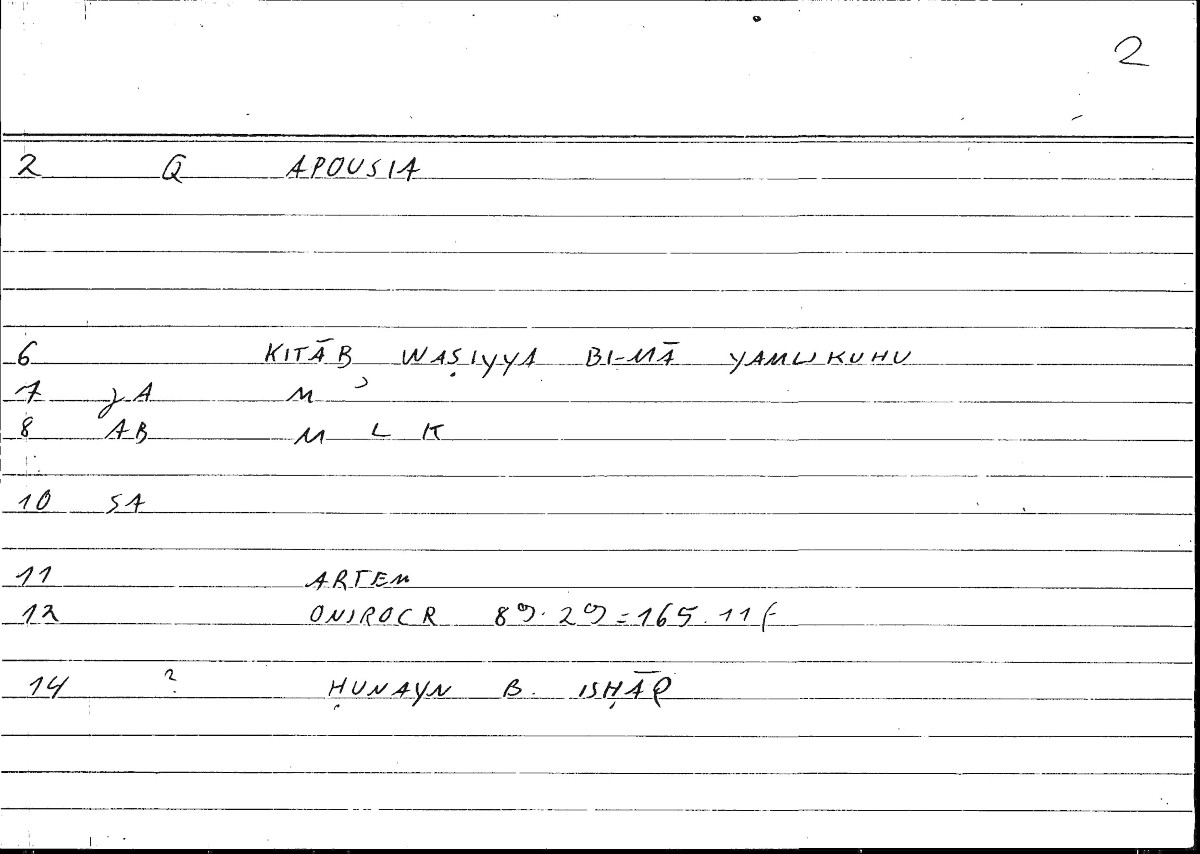 2
2 Q APOUSIA
6 KITĀB WAṢIYYA BI-MĀ YAMLIKUHU
7 JA M ʾ
8 AB M L K
10 SA
11 ARTEM
12 ONIROCR 89.29=165.11f
14 ? ḤUNAYN B. ISḤĀQ